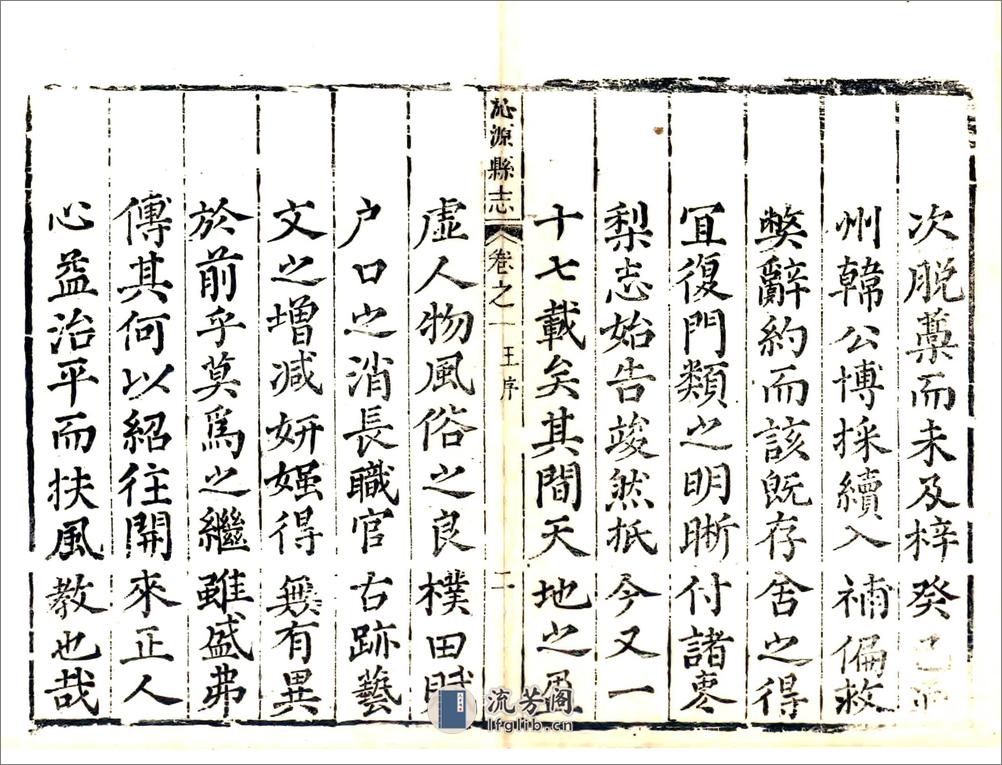 次脫藁而未及梓癸巳
州韓公博採續入補偏救
獘辭約而該既存舍之得
宜復門類之明晰付諸棗
梨志始告竣然扺今又一
十七載矣其間天地之盈
沁源縣志 卷之一 王序 二
虛人物風俗之良樸田賦
户口之消長職官古跡藝
文之增减妍媸得無有異
於前乎莫爲之繼雖盛弗
傳其何以紹往開來正人
心益治平而扶風教也哉
流芳阁
lfglib.cn